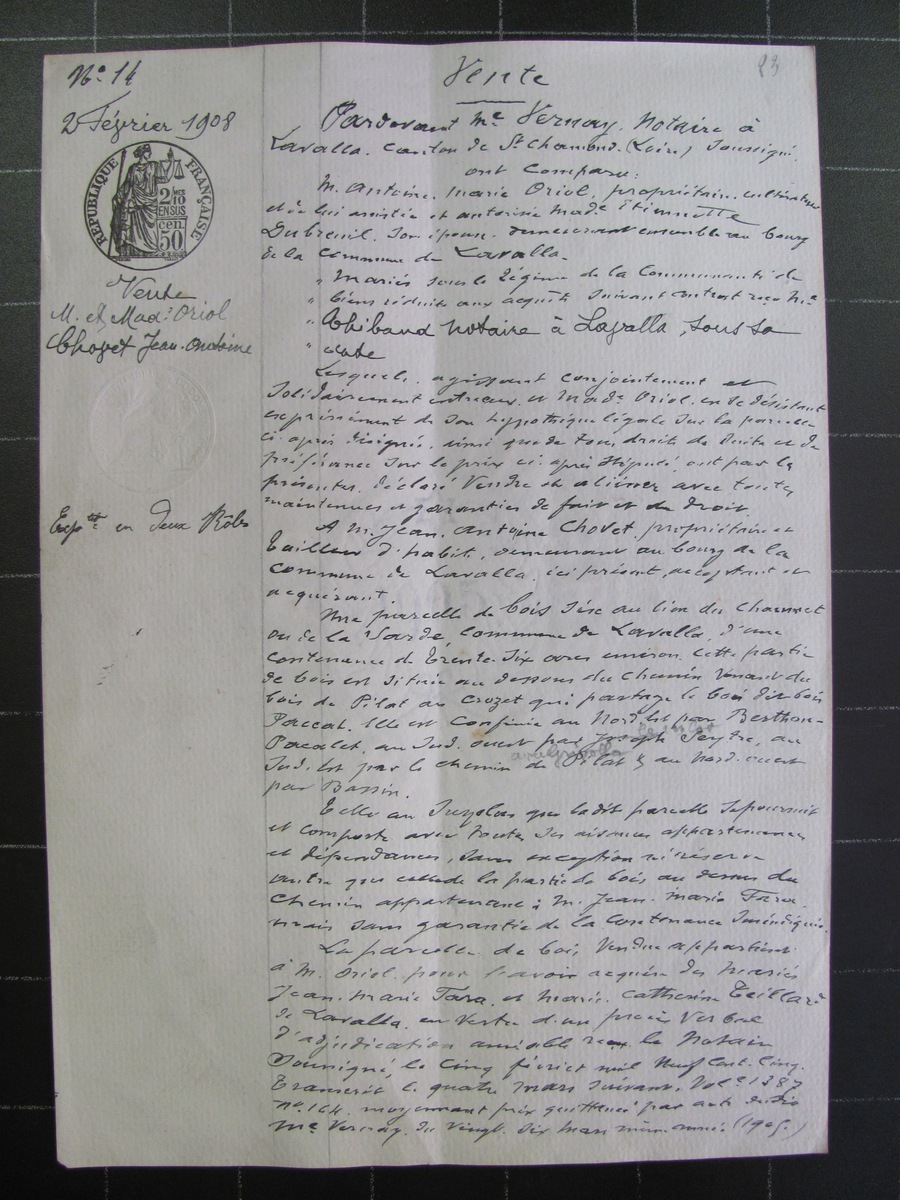 Nº 14
2 Février 1908
RÉPUBLIQUE FRANÇAISE
2/10 MES
EN SUS
50 cen.
Vente
M. et Mad. Oriol
Chovet Jean-Antoine
Exp.té en deux Rôles
Vente
23
Pardevant Me Vernay, Notaire à
Lavalla, canton de St Chamond (Loire) soussigné,
ont comparu:
M. Antoine Marie Oriol, propriétaire cultivateur
et de lui assistée et autorisée Made Étiennette
Dubreuil, son épouse, demeurant ensemble au bourg
de la commune de Lavalla.
" Mariés sous le régime de la Communauté de
" biens réduite aux acquêts suivant contrat reçu Me
" Thibaud notaire à Lavalla, sous sa
" date
Lesquels, agissant conjointement et
solidairement entr'eux, et Made Oriol, en se désistant
expressément de son hypothèque légale sur la parcelle
ci-après désignée, ainsi que de tous droits de suite et de
préférence sur le prix ci-après stipulé, ont par les
présentes, déclaré vendre et aliéner avec toutes
maintenues et garanties de fait et de droit,
A M. Jean-Antoine Chovet, propriétaire et
tailleur d'habit, demeurant au bourg de la
commune de Lavalla, ici présent, acceptant et
acquérant.
Une parcelle de bois sise au lieu du
ou de la commune de Lavalla, d'une
contenance de trente-six ares environ. Cette partie
de bois est située au dessous du chemin venant du
bois de Pilat au Crozet qui partage le bois dit bois
Paccat. Elle est confinée au Nord-Est par Berthon-
Pacalet, au Sud-ouest par Joseph Seytre, au
Sud-Est par le chemin de Pilat & au Nord-ouest
par Bassin.
Telle au surplus que ladite parcelle se poursuit
et comporte avec toutes ses aisances appartenances
et dépendances, sans exception ni réserve
autre que celle de la partie de bois au dessus du
chemin appartenant à M. Jean-Marie Fara,
mais sans garantie de la contenance susindiquée.
La parcelle de bois vendue appartient
à M. Oriol pour l'avoir acquise des mariés
Jean-Marie Fara et Marie Catherine Teillard
de Lavalla en vertu d'un procès verbal
d'adjudication amiable reçu le Notaire
soussigné, le cinq février mil neuf cent cinq,
transcrit le quatre mars suivant, Vol. 1387
nº 164, moyennant prix quittancé par acte dudit
Me Vernay du vingt-six mars même année (1905.)